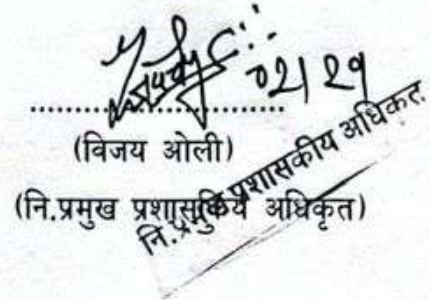 02/29
....................................
(विजय ओली)
(नि.प्रमुख प्रशासकिय अधिकृत)
नि.प्रमुख प्रशासकीय अधिकृत